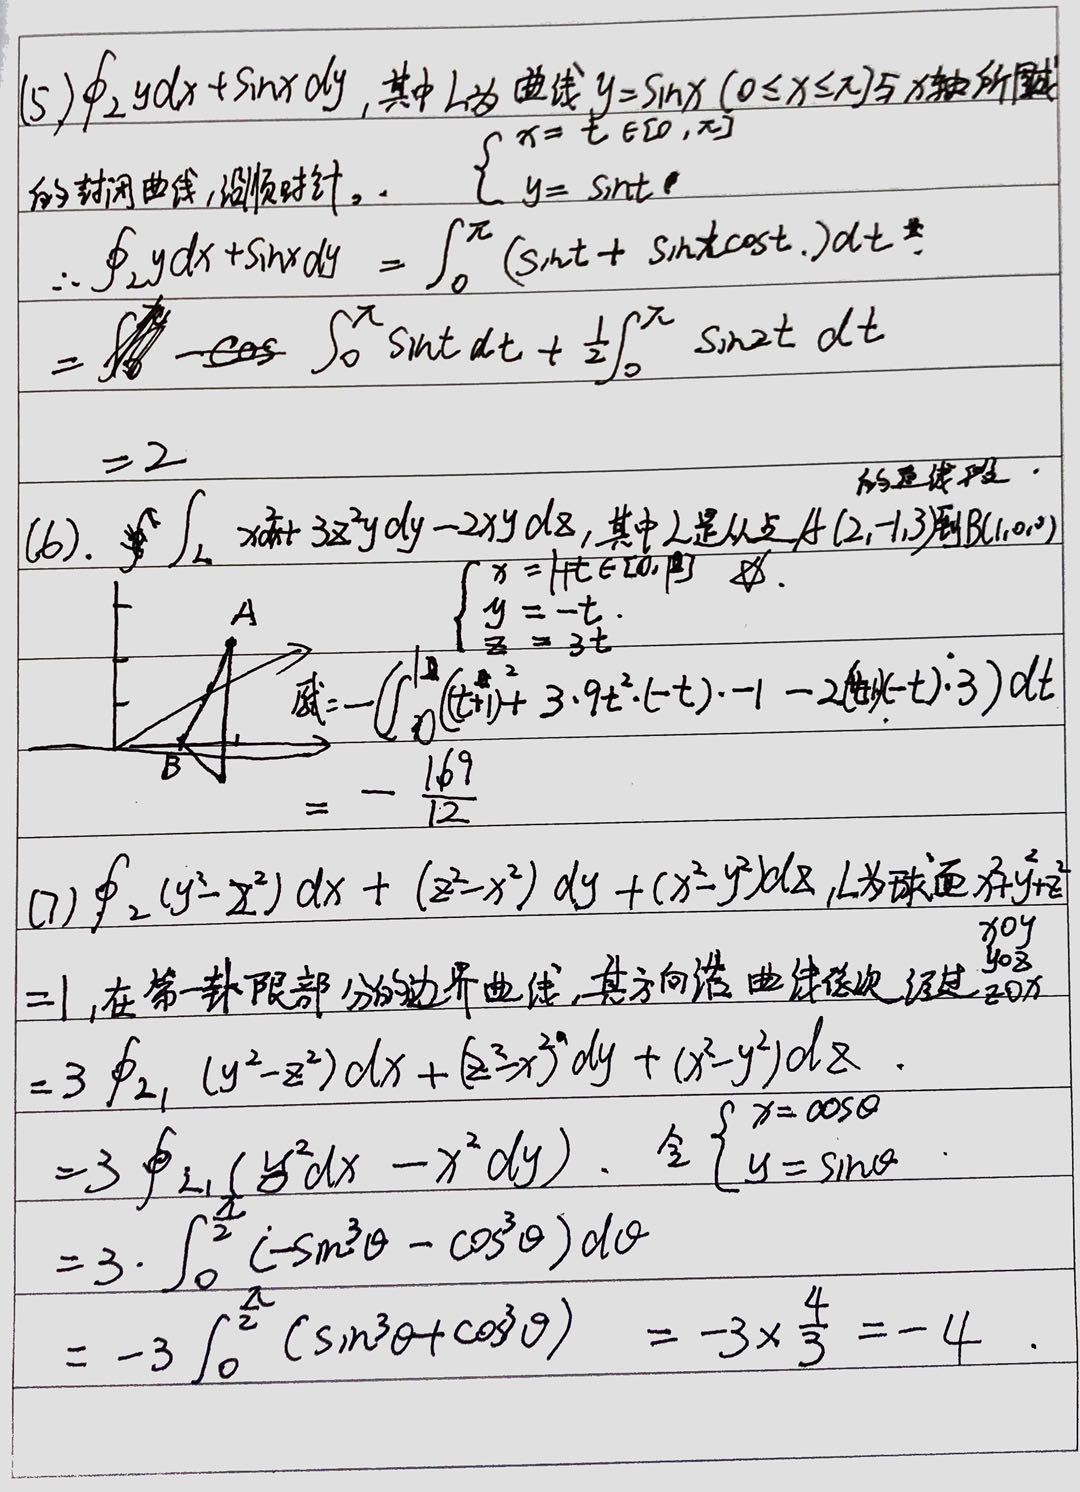 (5) ∮L ydx+sinxdy,其中L为曲线 y=sinx (0≤x≤π)与x轴所围成
{ x= t ∈[0,π]
的封闭曲线,沿顺时针。
y= sint
∴ ∮L ydx+sinxdy = ∫0^π (sint + sintcost)dt
= ∫0^π sint dt + 1/2 ∫0^π sin2t dt
=2
的直线段.
(6). ∫L x²dx+3z²ydy-2xydz,其中L是从点A(2,-1,3)到B(1,0,0)
{ x = 1+t ∈[0,1]
y = -t.
z = 3t
A
原式=-(∫0^1 ((t+1)²+ 3·9t²·(-t)·-1 -2(t+1)(-t)·3) dt
B
= -169/12
(7) ∮L (y²-z²)dx + (z²-x²)dy+(x²-y²)dz,L为球面x²+y²+z²
xoy
=1,在第一卦限部分的边界曲线,其方向沿曲线依次经过
yoz
zox
=3∮L1 (y²-z²)dx+(z²-x²)dy+(x²-y²)dz.
=3∮L1(y²dx-x²dy). 令 { x=cosθ
y=sinθ
=3·∫0^π/2 (-sin³θ-cos³θ)dθ
= -3∫0^π/2 (sin³θ+cos³θ) = -3×4/3 =-4.